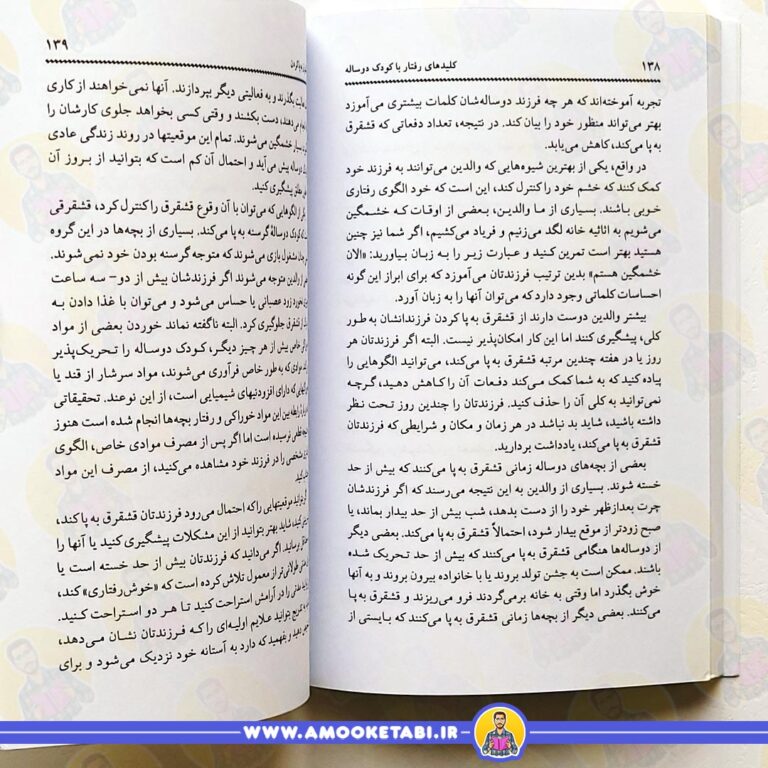 ۱۳۸
کلیدهای رفتار با کودک دوساله
تجربه آموخته‌اند که هر چه فرزند دوساله‌شان کلمات بیشتری می‌آموزد
بهتر می‌تواند منظور خود را بیان کند. در نتیجه، تعداد دفعاتی که قشقرق
به پا می‌کند، کاهش می‌یابد.
در واقع، یکی از بهترین شیوه‌هایی که والدین می‌توانند به فرزند خود
کمک کنند که خشم خود را کنترل کند، این است که خود الگوی رفتاری
خوبی باشند. بسیاری از ما والدین، بعضی از اوقات که خشمگین
می‌شویم به اثاثیه خانه لگد می‌زنیم و فریاد می‌کشیم، اگر شما نیز چنین
هستید بهتر است تمرین کنید و عبارت زیر را به زبان بیاورید: «الان
خشمگین هستم» بدین ترتیب فرزندتان می‌آموزد که برای ابراز این گونه
احساسات کلماتی وجود دارد که می‌توان آنها را به زبان آورد.
بیشتر والدین دوست دارند از قشقرق به پا کردن فرزندانشان به طور
کلی، پیشگیری کنند اما این کار امکان‌پذیر نیست. البته اگر فرزندتان هر
روز یا در هفته چندین مرتبه قشقرق به پا می‌کند، می‌توانید الگوهایی را
پیاده کنید که به شما کمک می‌کند دفعات آن را کاهش دهید، گرچه
نمی‌توانید به کلی آن را حذف کنید. فرزندتان را چندین روز تحت نظر
داشته باشید، شاید بد نباشد در هر زمان و مکان و شرایطی که فرزندتان
قشقرق به پا می‌کند، یادداشت بردارید.
بعضی از بچه‌های دوساله زمانی قشقرق به پا می‌کنند که بیش از حد
خسته شوند. بسیاری از والدین به این نتیجه می‌رسند که اگر فرزندشان
چرت بعدازظهر خود را از دست بدهد، شب بیش از حد بیدار بماند، یا
صبح زودتر از موقع بیدار شود، احتمالاً قشقرق به پا می‌کند. بعضی دیگر
از دوساله‌ها هنگامی قشقرق به پا می‌کنند که بیش از حد تحریک شده
باشند. ممکن است به جشن تولد بروند یا با خانواده بیرون بروند و به آنها
خوش بگذرد اما وقتی به خانه برمی‌گردند فرو می‌ریزند و قشقرق به پا
می‌کنند. بعضی دیگر از بچه‌ها زمانی قشقرق به پا می‌کنند که بایستی از
۱۳۹
بگذرند و به فعالیتی دیگر بپردازند. آنها نمی‌خواهند از کاری
دست بکشند و وقتی کسی بخواهد جلوی کارشان را
خشمگین می‌شوند. تمام این موقعیتها در روند زندگی عادی
دوساله پیش می‌آید و احتمال آن کم است که بتوانید از بروز آن
پیشگیری کنید.
از الگوهایی که می‌توان با آن وقوع قشقرق را کنترل کرد، قشقرقی
که کودک دوسالهٔ گرسنه به پا می‌کند. بسیاری از بچه‌ها در این گروه
مشغول بازی می‌شوند که متوجه گرسنه بودن خود نمی‌شوند.
والدین متوجه می‌شوند اگر فرزندشان بیش از دو- سه ساعت
نخورد زود عصبانی یا حساس می‌شود و می‌توان با غذا دادن به
قشقرق جلوگیری کرد. البته ناگفته نماند خوردن بعضی از مواد
خاص بیش از هر چیز دیگر، کودک دوساله را تحریک‌پذیر
موادی که به طور خاص فرآوری می‌شوند، مواد سرشار از قند یا
که دارای افزودنیهای شیمیایی است، از این نوعند. تحقیقاتی
رابطه بین این مواد خوراکی و رفتار بچه‌ها انجام شده است هنوز
قطعی نرسیده است اما اگر پس از مصرف موادی خاص، الگوی
مشخصی را در فرزند خود مشاهده می‌کنید، از مصرف این مواد
موقعیتهایی را که احتمال می‌رود فرزندتان قشقرق به پا کند،
کنید، شاید بهتر بتوانید از این مشکلات پیشگیری کنید یا آنها را
اگر می‌دانید که فرزندتان بیش از حد خسته است یا
طولانی‌تر از معمول تلاش کرده است که «خوش‌رفتاری» کند،
را در آرامش استراحت کنید تا هر دو استراحت کنید.
بتوانید علایم اولیه‌ای را که فرزندتان نشان می‌دهد،
بفهمید که دارد به آستانه خود نزدیک می‌شود و برای
WWW.AMOOKETABI.IR